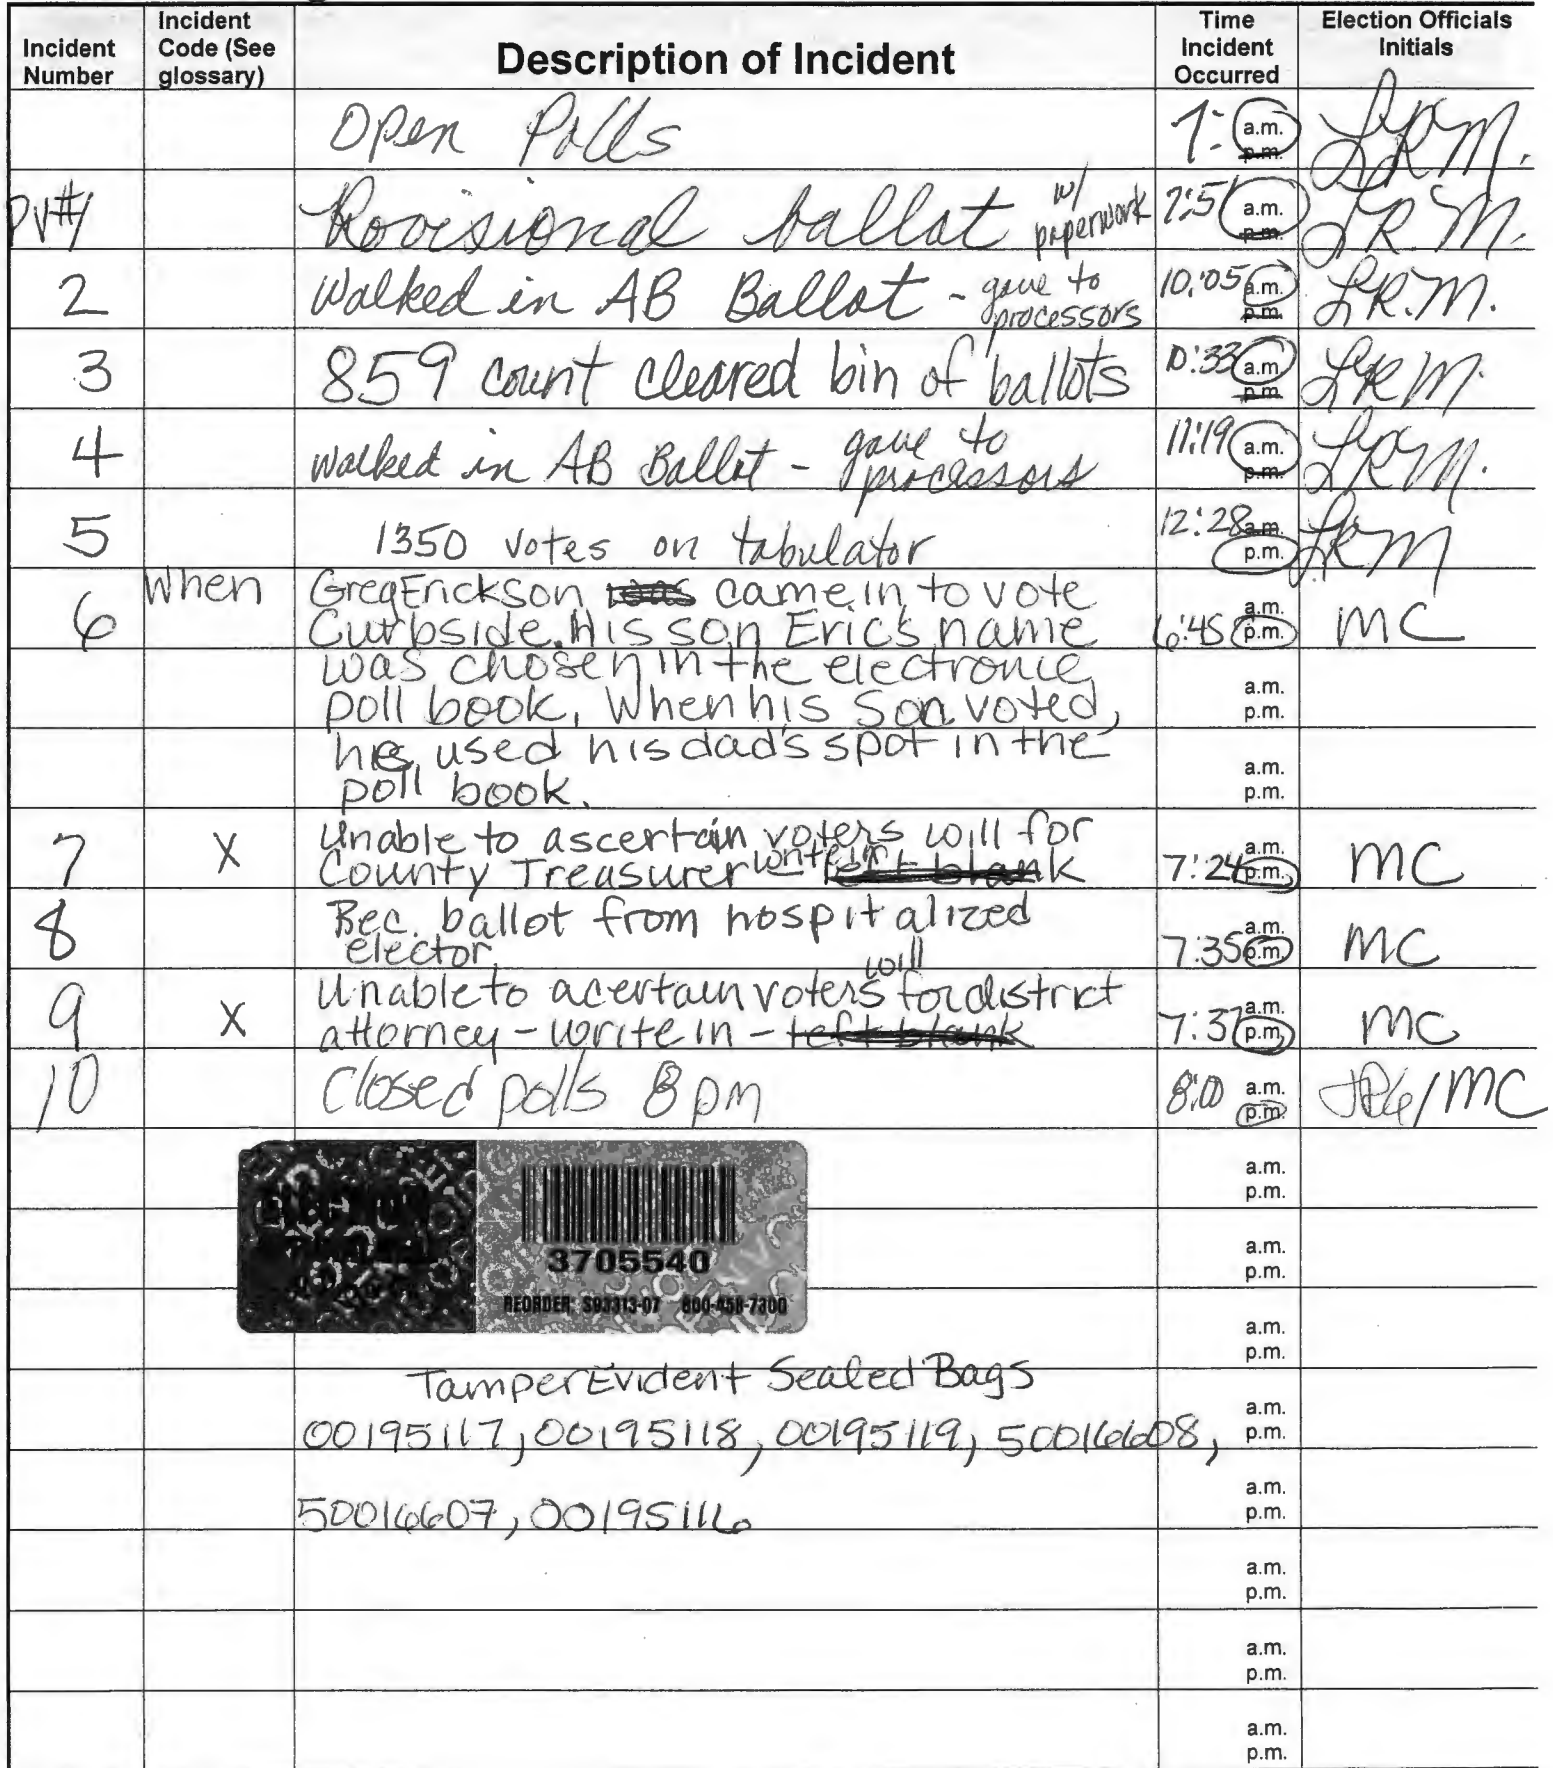 Incident Number
Incident Code (See glossary)
Description of Incident
Time Incident Occurred
Election Officials Initials
Open Polls 7: a.m. p.m. LRM.
PV#1 Provisional ballot w/ paperwork 7:51 a.m. p.m. L.R.M.
2 Walked in AB Ballot - gave to processors 10:05 a.m. p.m. L.R.M.
3 859 count cleared bin of ballots 10:33 a.m. p.m. LRM.
4 Walked in AB Ballot - gave to processors 11:19 a.m. p.m. LRM.
5 1350 votes on tabulator 12:28 a.m. p.m. LRM
6 When Greg Erickson was came in to vote
Curbside. His son Eric's name 6:45 a.m. p.m. MC
was chosen in the electronic
poll book. When his son voted, a.m. p.m.
he used his dad's spot in the
poll book. a.m. p.m.
7 X Unable to ascertain voters will for
County Treasurer write in left blank 7:24 a.m. p.m. MC
8 Rec. ballot from hospitalized
elector 7:35 a.m. p.m. MC
9 X Unable to acertain voters will for district
attorney - write in - left blank 7:37 a.m. p.m. MC
10 Closed polls 8 pm 8:00 a.m. p.m. /MC
a.m. p.m.
3705540 a.m. p.m.
REORDER: S93313-07 800-458-7300
a.m. p.m.
Tamper Evident Sealed Bags
00195117, 00195118, 00195119, 50016608, a.m. p.m.
50016607, 00195116 a.m. p.m.
a.m. p.m.
a.m. p.m.
a.m. p.m.